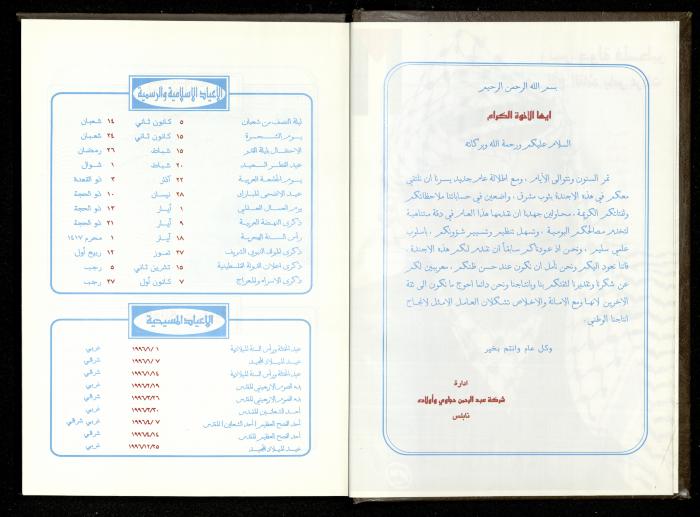 بسم الله الرحمن الرحيم
ايها الاخوة الكرام
السلام عليكم ورحمة الله وبركاته
تمر السنون وتتوالى الأيام ، ومع اطلالة عام جديد يسرنا ان نلتقي
معكم في هذه الاجندة بثوب مشرق ، واضعين في حساباتنا ملاحظاتكم
ولفتاتكم الكريمة ، محاولين جهدنا ان نقدمها هذا العام في دقة متناهية
لتخدم مصالحكم اليومية ، وتسهل تنظيم وتسيير شؤونكم ، باسلوب
علمي سليم ، ونحن اذ عودناكم سابقاً ان نقدم لكم هذه الاجندة ،
فاننا نعود اليكم ونحن نأمل ان نكون عند حسن ظنكم ، معربين لكم
عن شكرنا وتقديرنا لثقتكم بنا وبانتاجنا ونحن دائما احوج ما نكون الى ثقة
الاخرين لانها ومع الامانة والاخلاص تشكلان العامل الامثل لانجاح
انتاجنا الوطني .
وكل عام وانتم بخير
ادارة
شركة عبد الرحمن حجاوي وأولاده
نابلس
الأعياد الاسلامية والرسمية
ليلة النصف من شعبان ٥ كانون ثاني ١٤ شعبان
يوم الشجرة ١٥ كانون ثاني ٢٤ شعبان
الاحتفال بليلة القدر ١٥ شباط ٢٦ رمضان
عيد الفطر السعيد ٢٠ شباط ١ شوال
يوم الجامعة العربية ٢٢ آذار ٣ ذو القعدة
عيد الاضحى المبارك ٢٨ نيسان ١٠ ذو الحجة
يوم العمال العالمي ١ أيار ١٣ ذو الحجة
ذكرى النهضة العربية ٩ أيار ٢١ ذو الحجة
رأس السنة الهجرية ١٨ أيار ١ محرم ١٤١٧
ذكرى المولد النبوي الشريف ٢٧ تموز ١٢ ربيع أول
ذكرى اعلان الدولة الفلسطينية ١٥ تشرين ثاني ٥ رجب
ذكرى الاسراء والمعراج ٧ كانون أول ٢٧ رجب
الأعياد المسيحية
عيد الختانة ورأس السنة الميلادية ١٩٩٦/١/١ غربي
عيد الميلاد المجيد ١٩٩٦/١/٧ شرقي
عيد الختانة ورأس السنة الميلادية ١٩٩٦/١/١٤ شرقي
بدء الصوم الاربعيني المقدس ١٩٩٦/٢/١٩ غربي
بدء الصوم الاربعيني المقدس ١٩٩٦/٢/٢٦ شرقي
أحد الشعانين المقدس ١٩٩٦/٣/٣٠ غربي
أحد الفصح العظيم (أحد الشعانين) المقدس ١٩٩٦/٤/٧ غربي شرقي
أحد الفصح العظيم المقدس ١٩٩٦/٤/١٤ شرقي
عيد الميلاد المجيد ١٩٩٦/١٢/٢٥ غربي